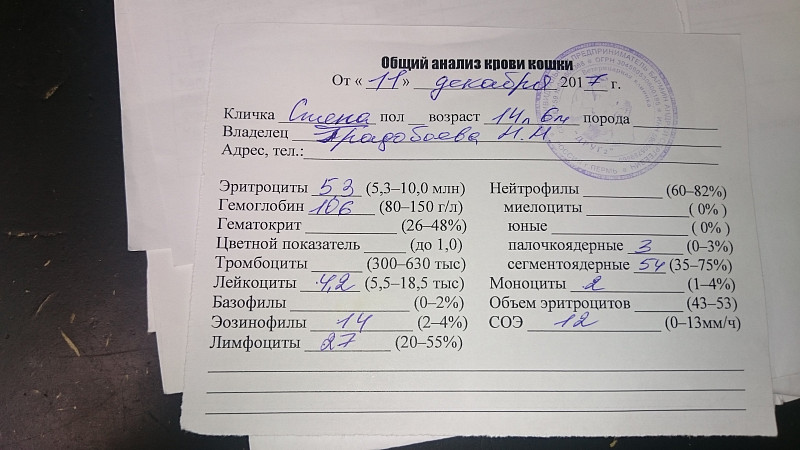 Общий анализ крови кошки
От « 11 » декабря 2017 г.
Кличка Стена пол __ возраст 14л 6м порода
Владелец Н.Н.
Адрес, тел.:
Эритроциты 5,3 (5,3–10,0 млн)
Гемоглобин 106 (80–150 г/л)
Гематокрит (26–48%)
Цветной показатель (до 1,0)
Тромбоциты (300–630 тыс)
Лейкоциты 4,2 (5,5–18,5 тыс)
Базофилы (0–2%)
Эозинофилы 14 (2–4%)
Лимфоциты 27 (20–55%)
Нейтрофилы (60–82%)
миелоциты ( 0% )
юные ( 0% )
палочкоядерные 3 (0–3%)
сегментоядерные 54 (35–75%)
Моноциты 2 (1–4%)
Объем эритроцитов (43–53)
СОЭ 12 (0–13мм/ч)